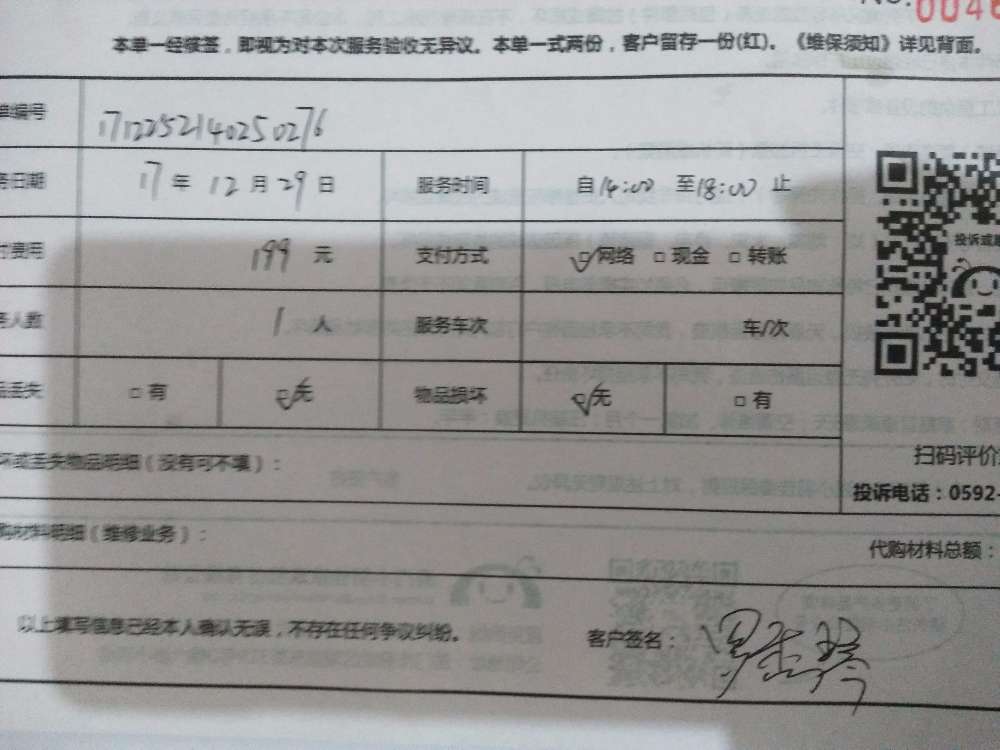 No. 0046
本单一经续签，即视为对本次服务验收无异议。本单一式两份，客户留存一份(红)。《维保须知》详见背面。
单编号 1712252140250276
务日期 17 年 12 月 29 日 服务时间 自14:00 至18:00 止
付费用 199 元 支付方式 网络 现金 转账
务人数 1 人 服务车次 车/次
品丢失 有 无 物品损坏 无 有
坏或丢失物品明细（没有可不填）：
购材料明细（维修业务）： 代购材料总额：
以上填写信息已经本人确认无误，不存在任何争议纠纷。 客户签名：
投诉或
扫码评价
投诉电话：0592-